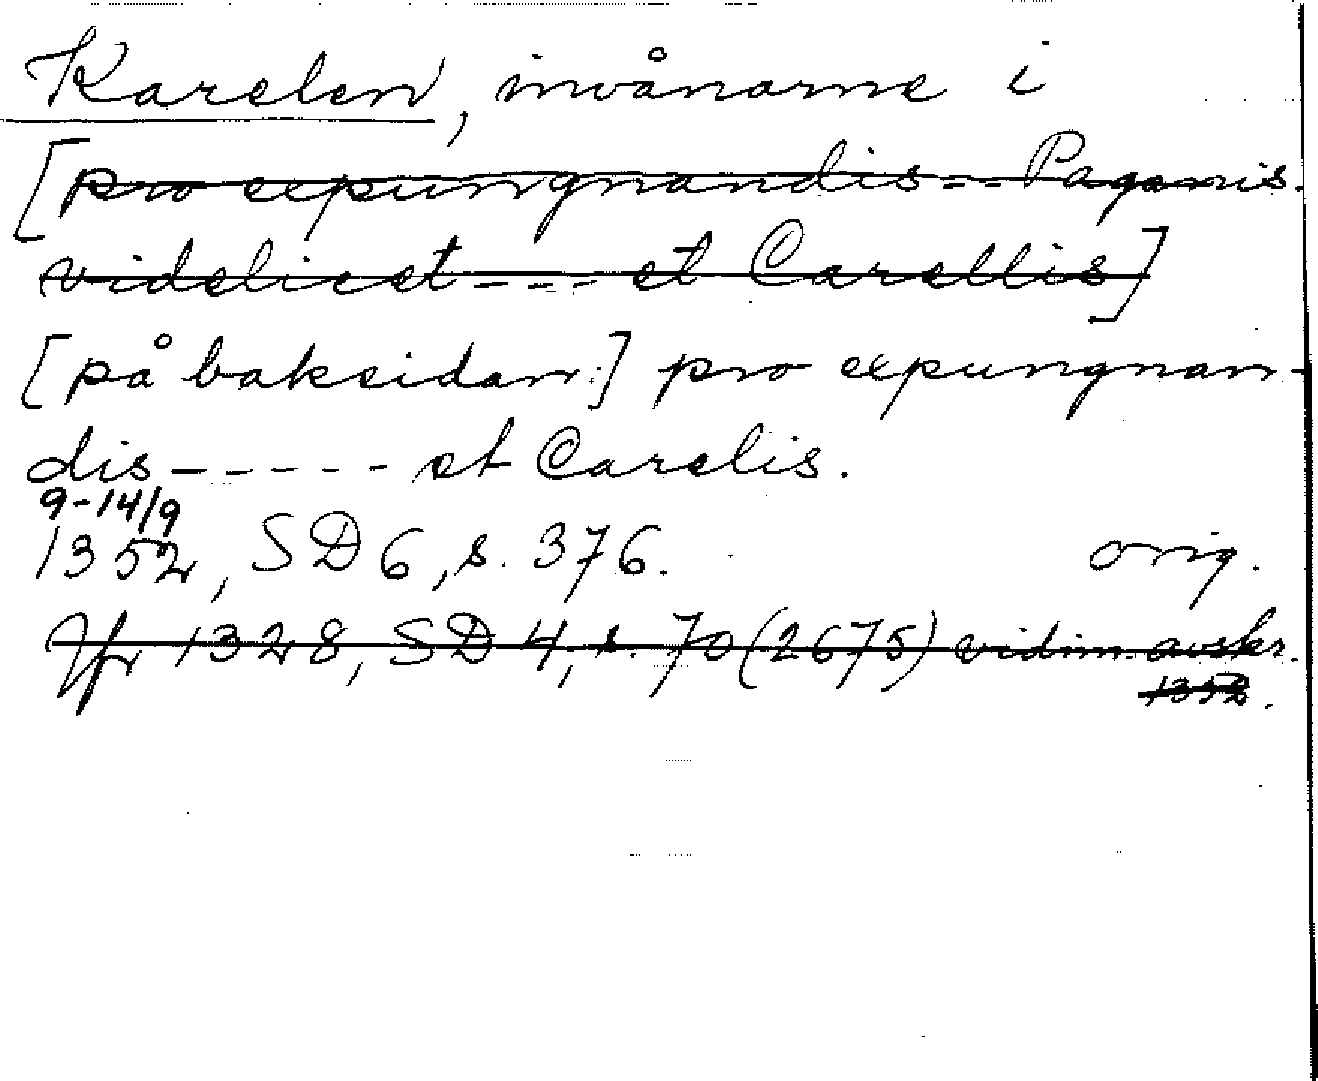 Karelen, invånarne i
[pro expungnandis -- Paganis.
videlicet --- et Carellis]
[på baksidan:] pro expungnan-
dis ----- et Carelis.
9-14/9
1352, SD 6, s. 376. orig.
Jfr 1328, SD 4, s. 70 (2675) vidim. avskr.
1352.